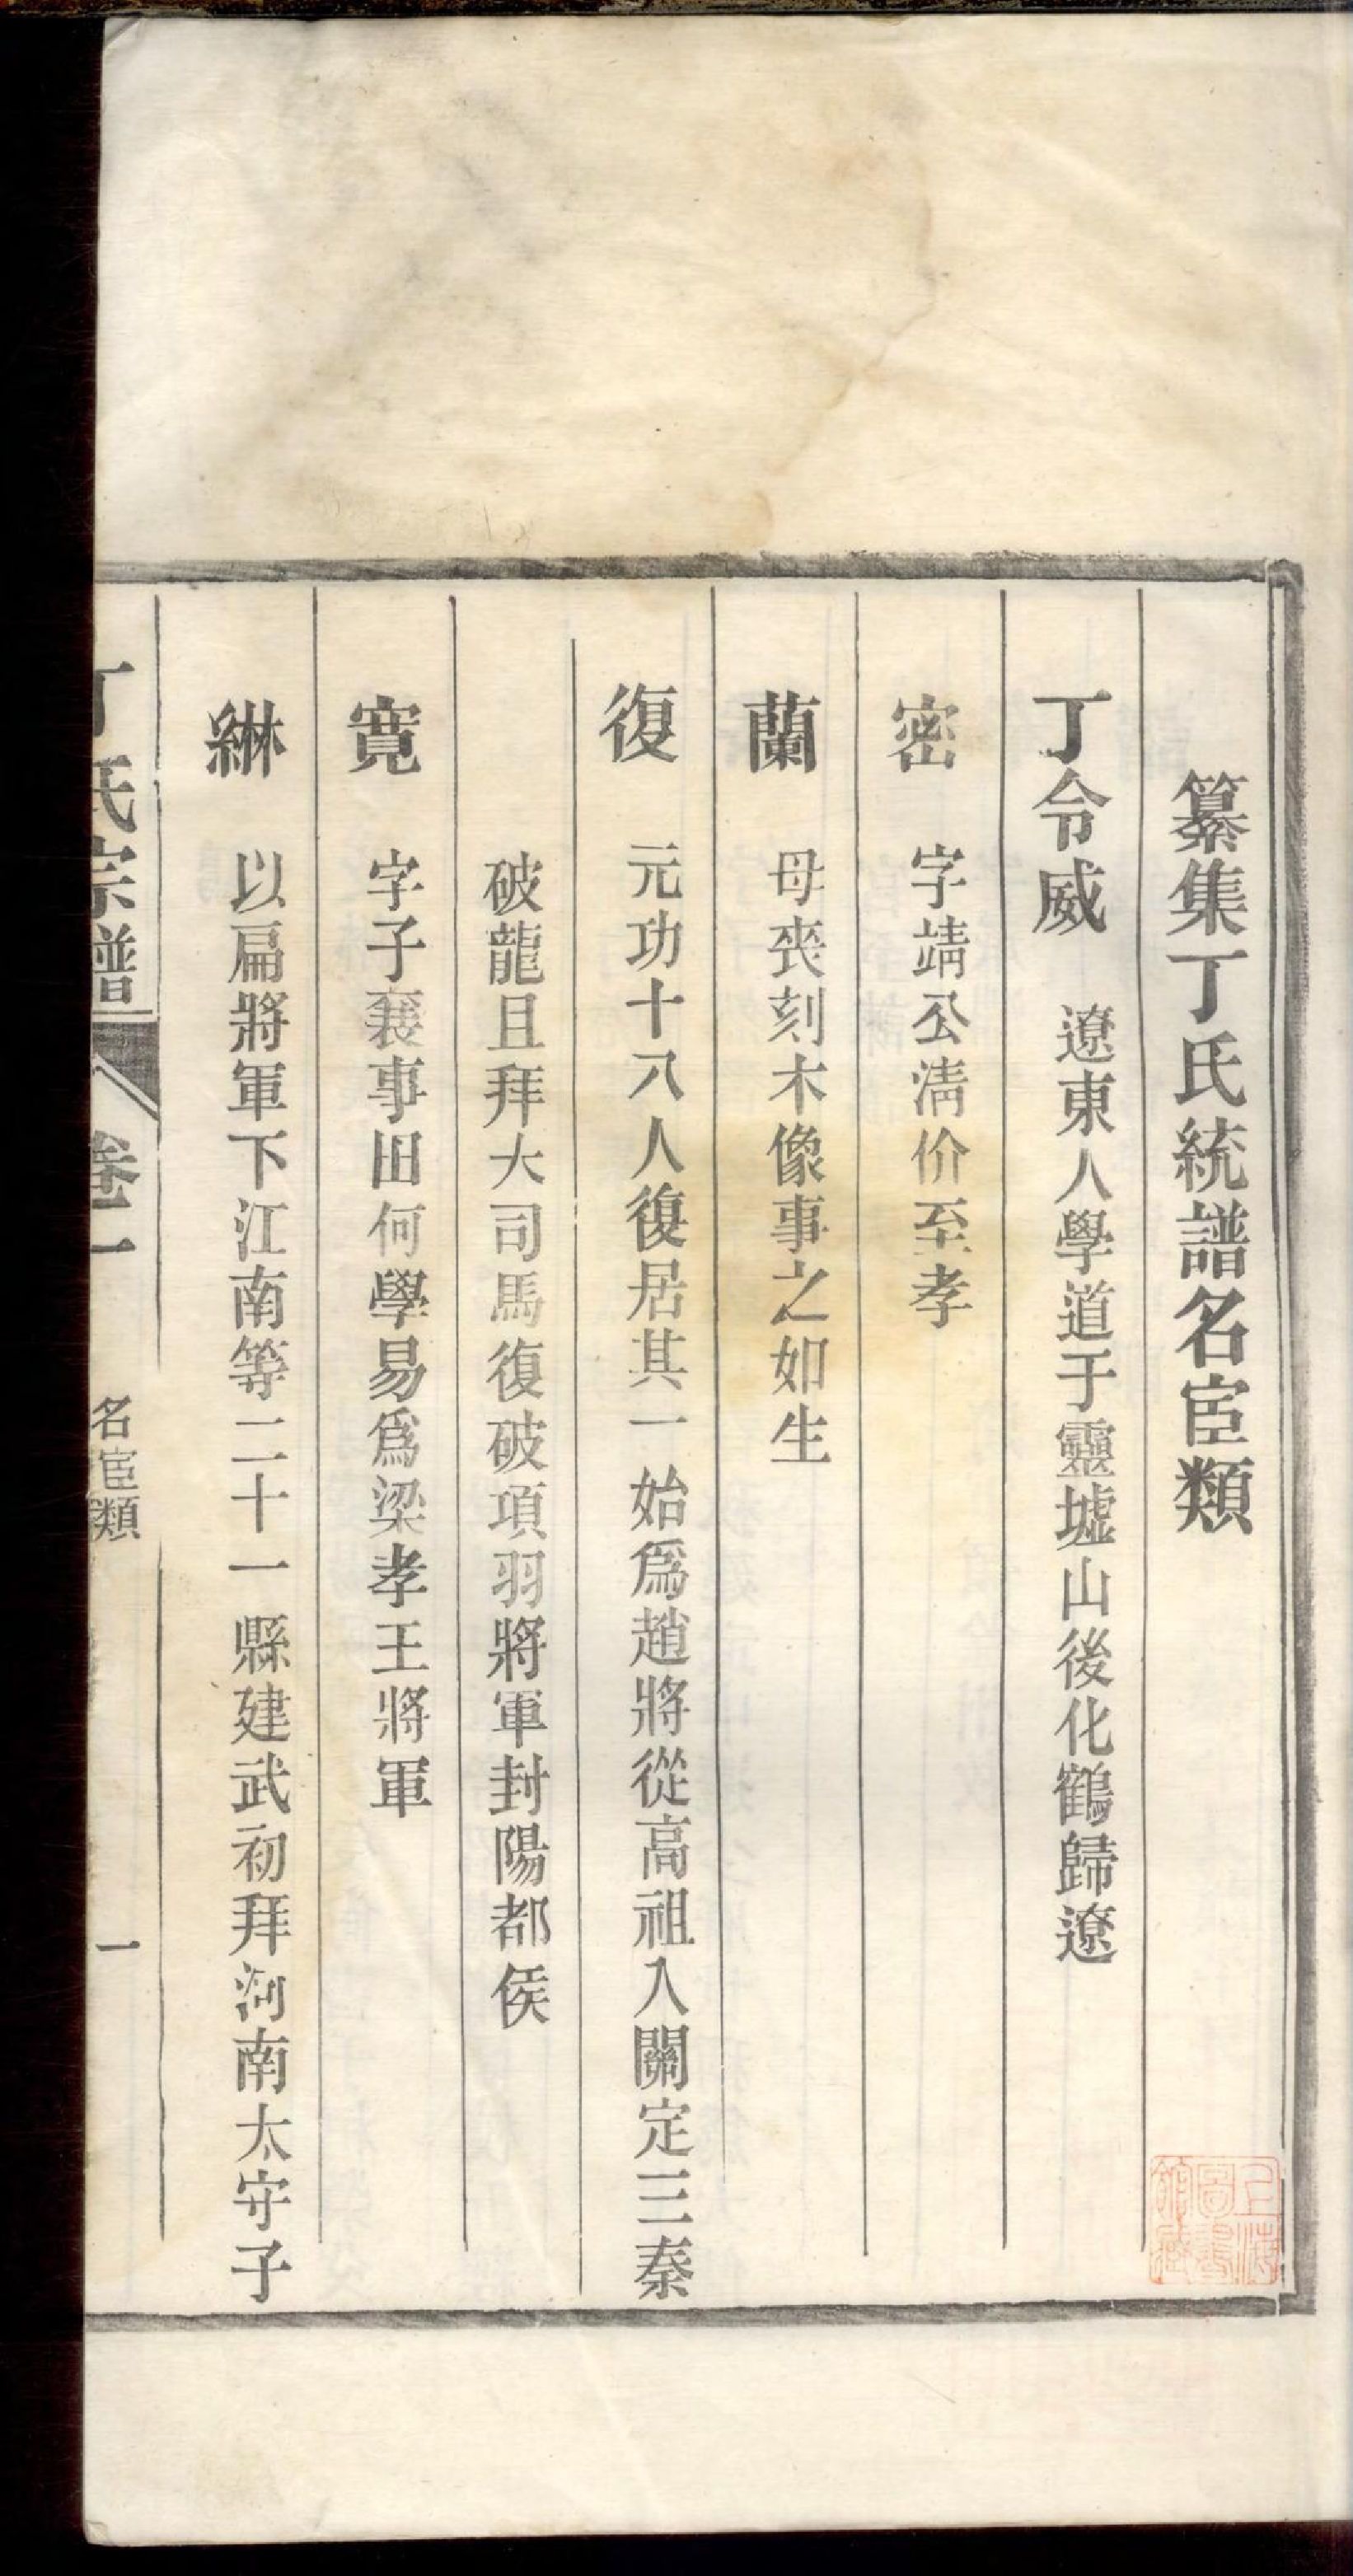 纂集丁氏統譜名宦類
丁令威　遼東人學道于靈墟山後化鶴歸遼
密　字靖公清价至孝
蘭　母喪刻木像事之如生
復　元功十八人復居其一始爲趙將從高祖入關定三秦
破龍且拜大司馬復破項羽將軍封陽都侯
寬　字子襄事田何學易爲梁孝王將軍
綝　以扁將軍下江南等二十一縣建武初拜河南太守子
丁氏宗譜　卷一　名宦類　一
上海圖書館藏